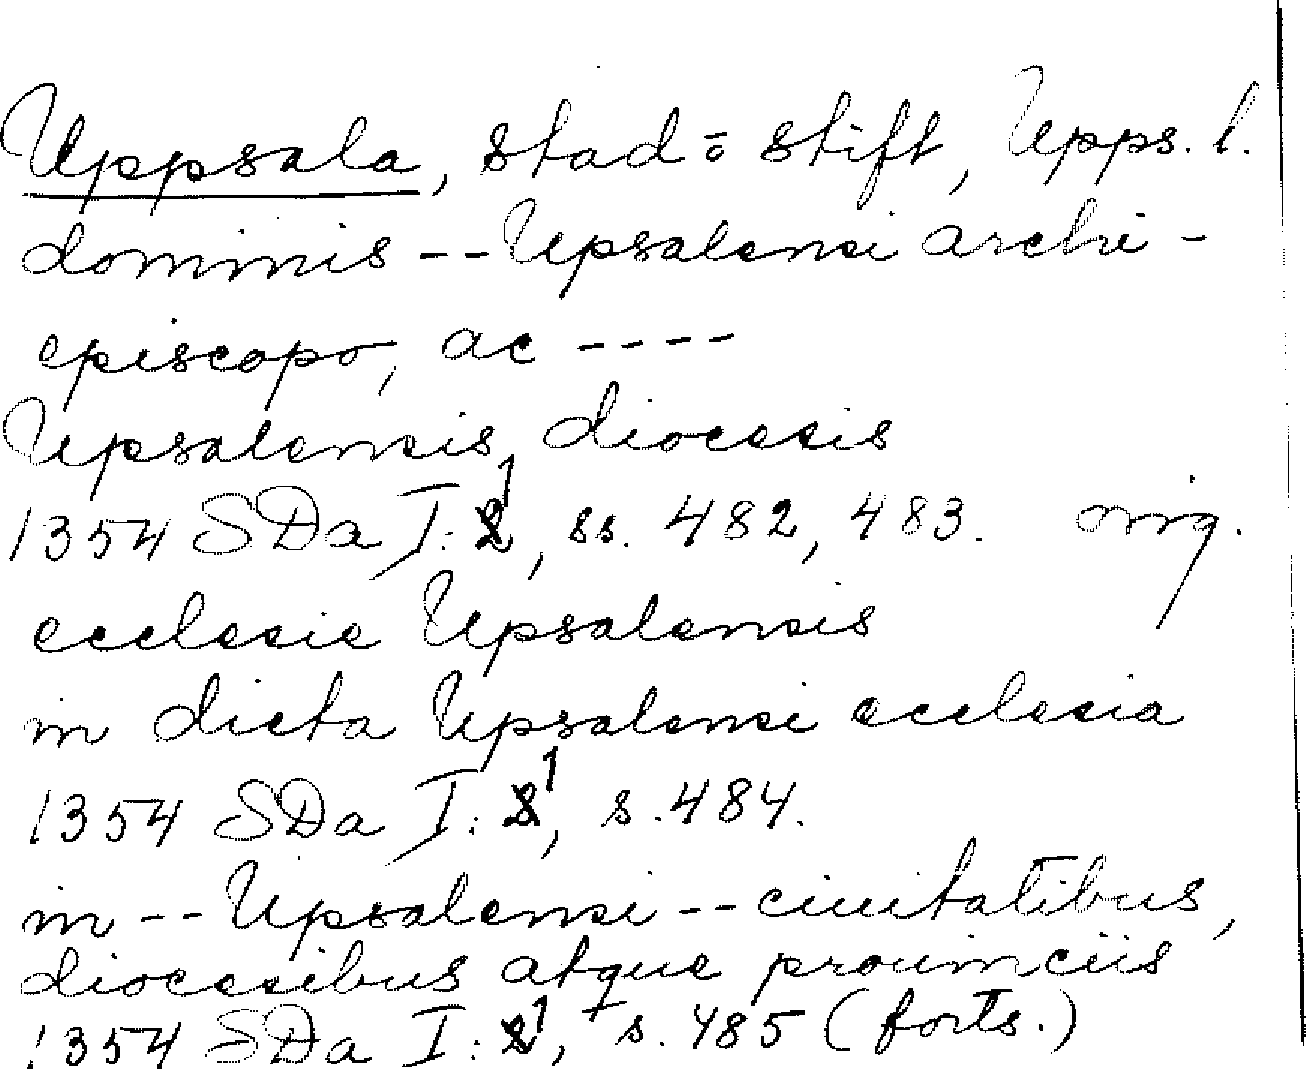 Uppsala, stad o stift, Upps. l.
dominis -- Upsalensi archi-
episcopo, ac ----
Upsalensis diocesis
1354 SDa I:1, ss. 482, 483. orig.
ecclesie Upsalensis
in dicta Upsalensi ecclesia
1354 SDa I:1, s. 484.
in -- Upsalensi -- ciuitatibus,
diocesibus atque prouinciis
1354 SDa I:1, s. 485 (forts.)